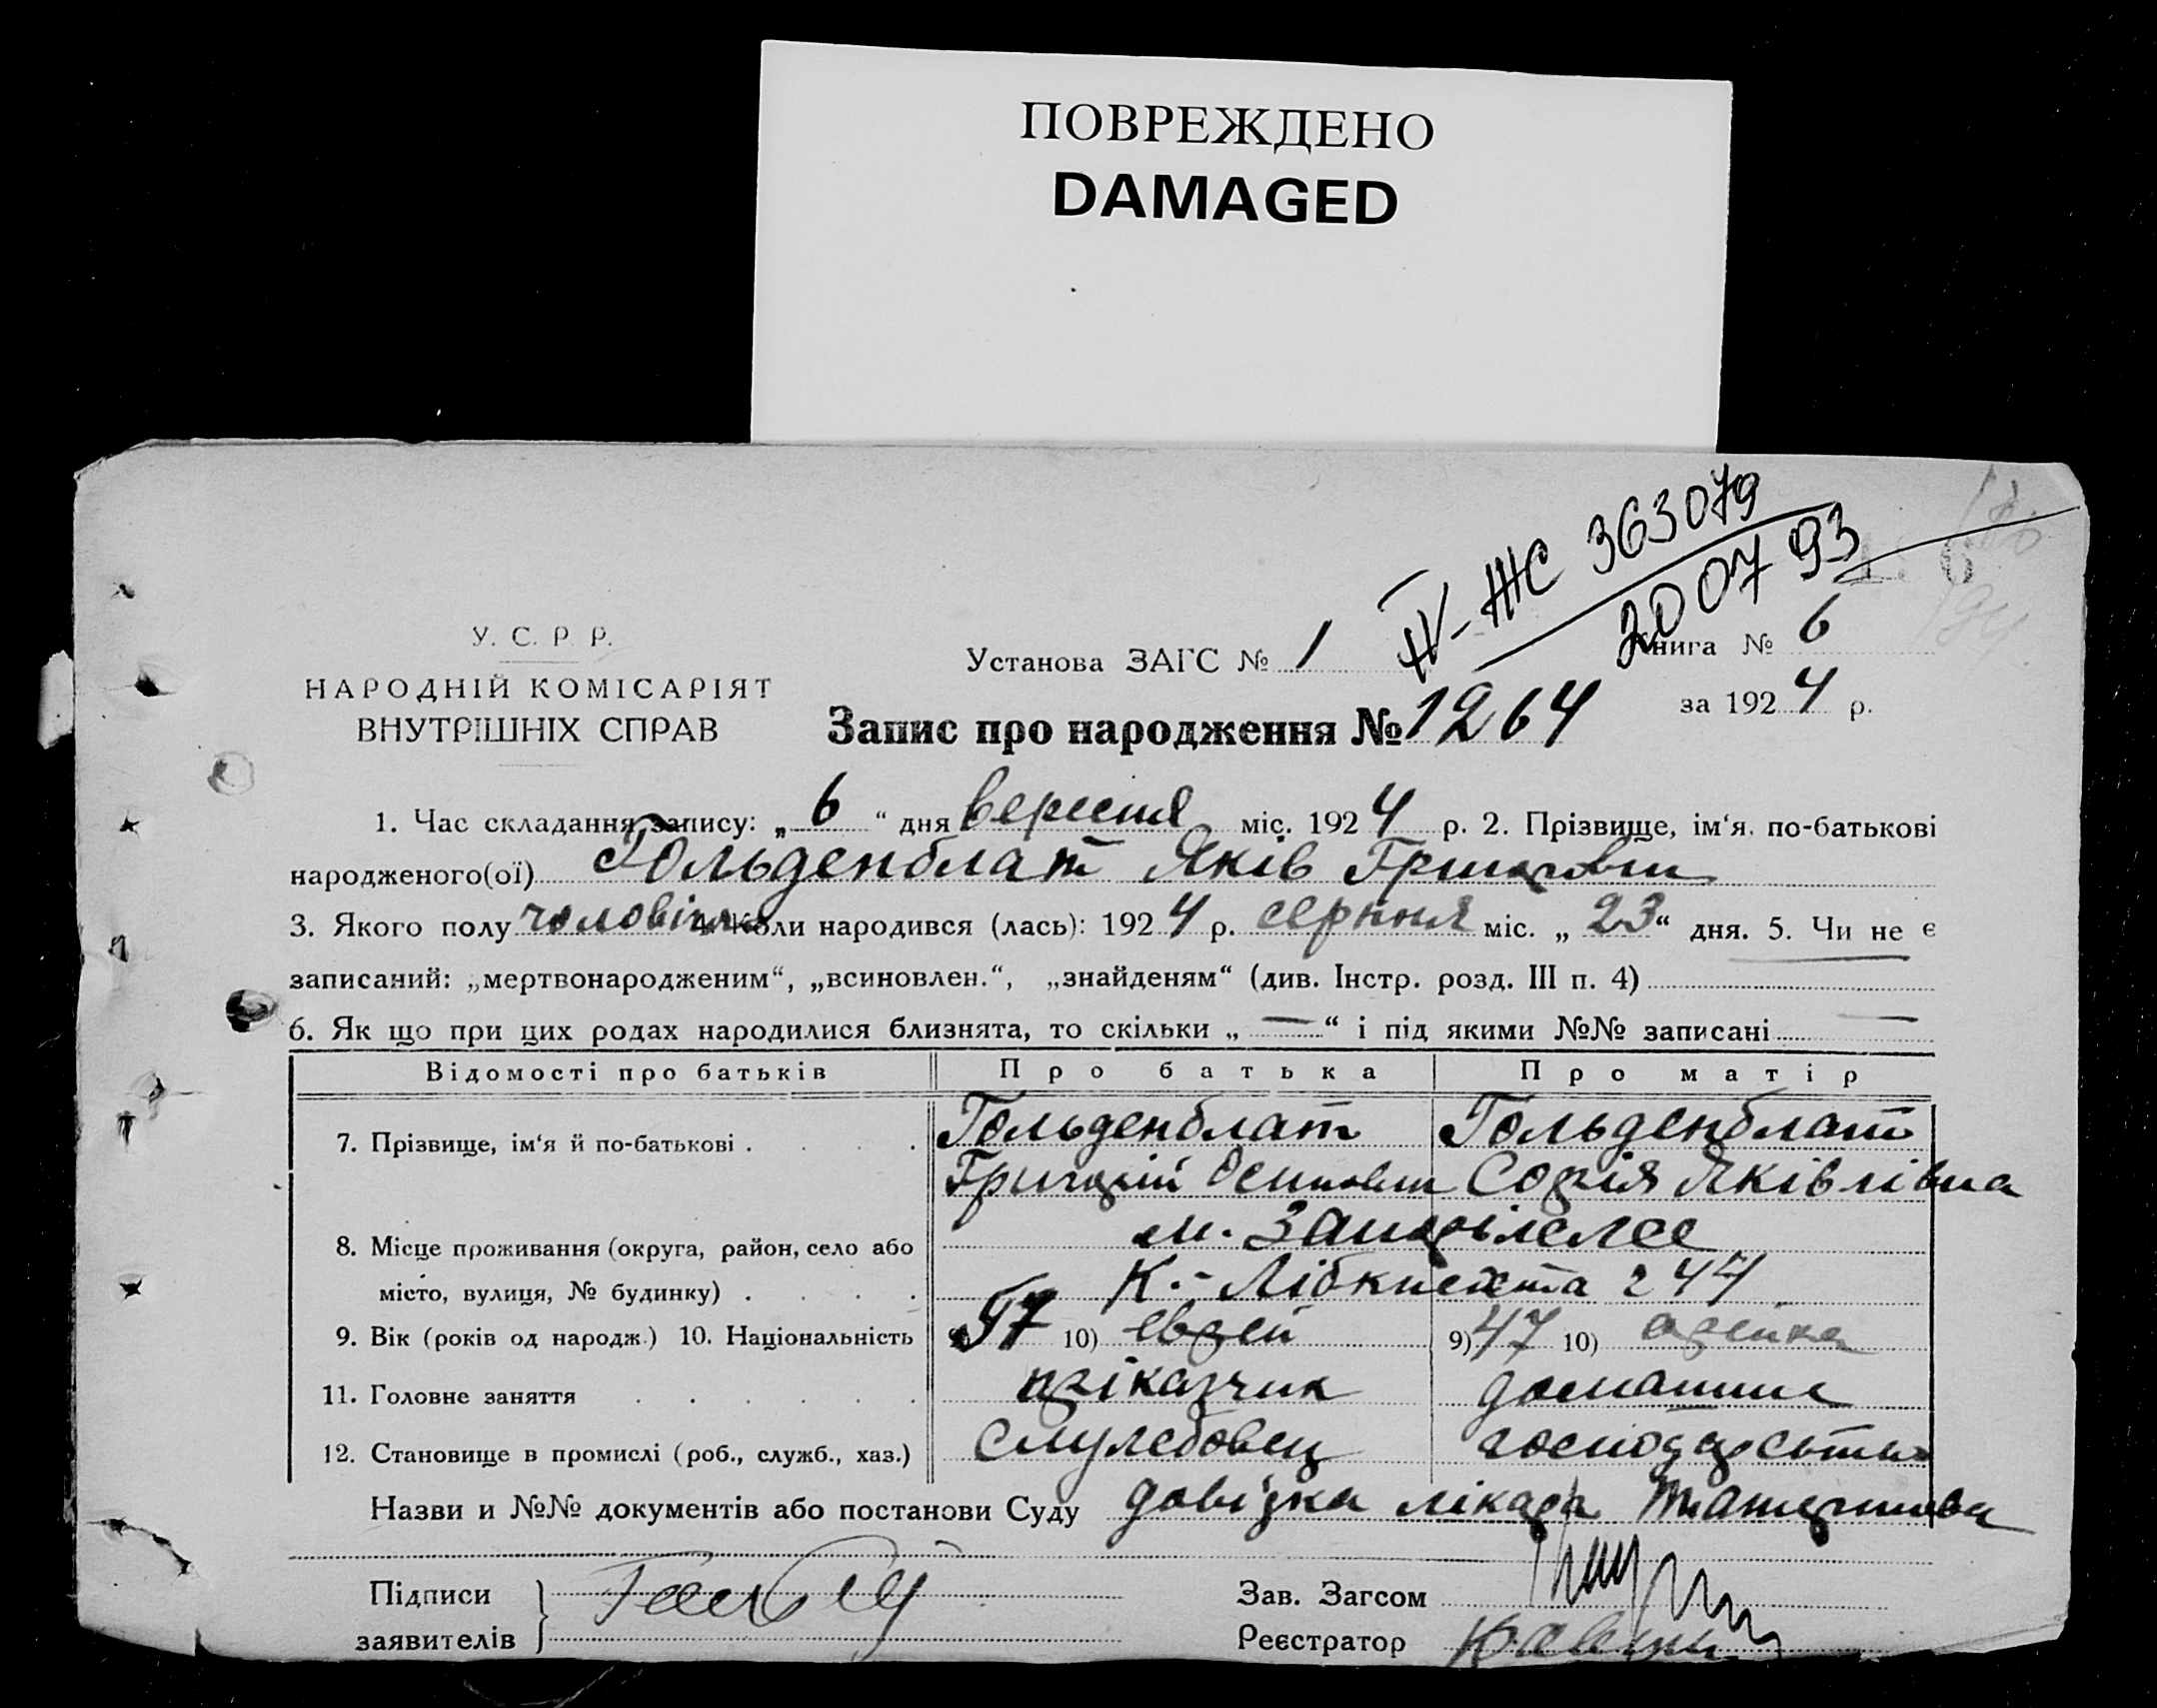 ПОВРЕЖДЕНО
DAMAGED
IV-ЖС 363079
20 07 93
У. С. Р. Р.
НАРОДНІЙ КОМІСАРІЯТ
ВНУТРІШНІХ СПРАВ
Установа ЗАГС № 1
Книга № 6
за 1924 р.
Запис про народження № 1264
1. Час складання запису: „ 6 “ дня вересня міс. 1924 р. 2. Прізвище, ім‘я. по-батькові
народженого(ої) Гольденблат Яків Григорович
3. Якого полу чоловіч 4. Коли народився (лась): 1924 р. серпня міс. „ 23 “ дня. 5. Чи не є
записаний: „мертвонародженим“, „всиновлен.“, „знайденям“ (див. Інстр. розд. III п. 4)
6. Як що при цих родах народилися близнята, то скільки „ — “ і під якими №№ записані —
Відомості про батьків Про батька Про матір
7. Прізвище, ім‘я й по-батькові . . . . Гольденблат Гольденблат
Григорій Осипович Софія Яківлівна
8. Місце проживання (округа, район, село або
місто, вулиця, № будинку) . . . . К.-Лібкнехта 47
9. Вік (років од народж.) 10. Національність 9) 57 10) еврей 9) 47 10)
11. Головне заняття . . . . . . приказчик домашнє
12. Становище в промислі (роб., служб., хаз.) служебовец господарство
Назви и №№ документів або постанови Суду довідка лікаря
Підписи
заявителів
Зав. Загсом
Реєстратор